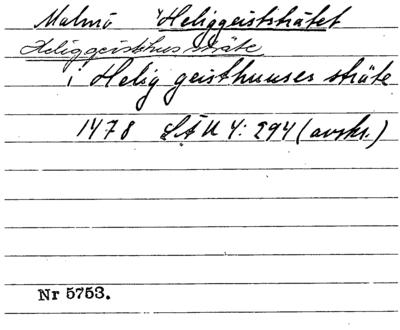 Malmö *Heliggeiststrätet
Heliggeisthus sträte
i Helig geisthuuses sträte
1478 LÄU 4: 294 (avskr.)
Nr 5753.